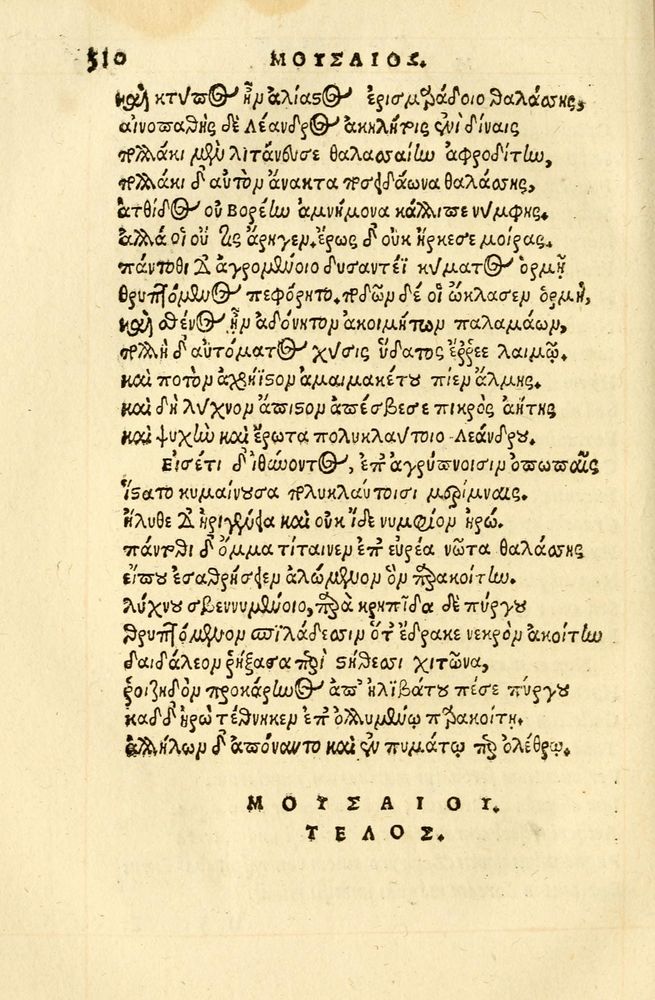 310 ΜΟΥΣΑΙΟΣ.
καὶ κτύπος ἦν ἁλίαστος ἐρισμαράδοιο θαλάσσης,
αἰνοπαθὴς δὲ Λέανδρος ἀκηλήτοις ἐνὶ δίναις
πολλάκι μὲν λιτάνευσε θαλασσαίην ἀφροδίτην,
πολλάκι δ' αὐτὸν ἄνακτα ποσειδάωνα θαλάσσης,
ἀτθίδος οὐ βορέην ἀμνήμονα κάλλιπε νύμφης.
ἀλλά οἱ οὔ τις ἄρηγεν. ἔρως δ' οὐκ ἤρκεσε μοίρας.
πάντοθι δ' ἀγρομένοιο δυσαντέϊ κύματος ὁρμῇ
θρυπτόμενος πεφόρητο. ποδῶν δέ οἱ ὤκλασεν ὁρμή,
καὶ σθένος ἦν ἀδόνητον ἀκοιμήτων παλαμάων,
πολλὴ δ' αὐτόματος χύσις ὕδατος ἔρρεε λαιμῷ.
καὶ ποτὸν ἀχρήϊστον ἀμαιμακέτου πίεν ἅλμης.
καὶ δὴ λύχνον ἄπιστον ἀπέσβεσε πικρὸς ἀήτης
καὶ ψυχὴν καὶ ἔρωτα πολυκλαύτοιο Λεάνδρου.
Εἰσέτι δηθύνοντος, ἐπ' ἀγρύπνοισιν ὀπωπαῖς
ἵστατο κυμαίνουσα πολυκλαύτοισι μερίμναις.
ἤλυθε δ' ἠριγένεια καὶ οὐκ ἴδε νυμφίον ἡρώ.
πάντοθι δ' ὄμμα τίταινεν ἐπ' εὐρέα νῶτα θαλάσσης
εἴπου ἐσαθρήσειεν ἀλώμενον ὃν παρακοίτην.
λύχνου σβεννυμένοιο, παρὰ κρηπῖδα δὲ πύργου
θρυπτόμενον σπιλάδεσσιν ὅτ' ἔδρακε νεκρὸν ἀκοίτην
δαιδάλεον ῥήξασα περὶ στήθεσσι χιτῶνα,
ῥοιζηδὸν προκάρηνος ἀπ' ἠλιβάτου πέσε πύργου
καδδ' ἡρὼ τέθνηκεν ἐπ' ὀλλυμένῳ παρακοίτῃ.
ἀλλήλων δ' ἀπόναντο καὶ ἐν πυμάτῳ περ ὀλέθρῳ.
ΜΟΥΣΑΙΟΥ.
ΤΕΛΟΣ.